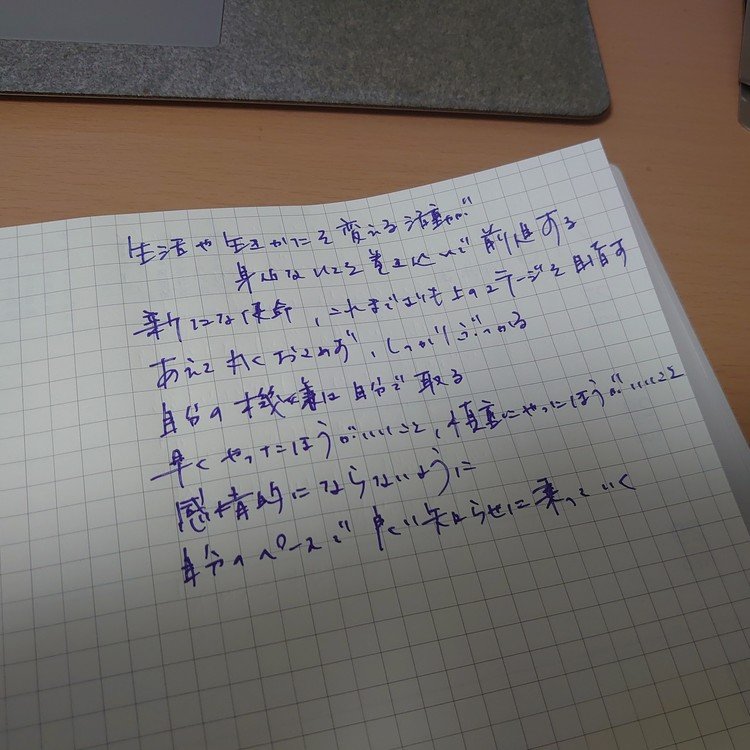 生活や生きかたを変える活動が
身近な人を巻き込んで前進する
新たな使命、これまでよりも上のステージを目指す
あえて丸くおさめず、しっかりぶつかる
自分の機嫌は自分で取る
早くやったほうがいいこと、慎重にやったほうがいいこと
感情的にならないように
自分のペースで良い知らせに乗っていく